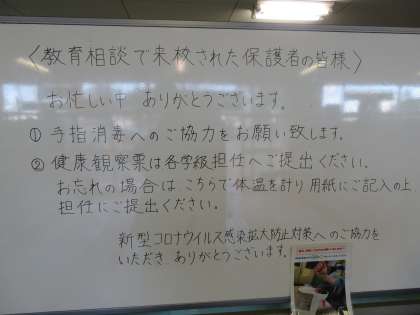 〈教育相談で来校された保護者の皆様〉
お忙しい中 ありがとうございます。
① 手指消毒へのご協力をお願い致します。
② 健康観察票は各学級担任へご提出ください。
お忘れの場合は こちらで体温を計り 用紙にご記入の上
担任にご提出ください。
新型コロナウイルス感染拡大防止対策へのご協力を
いただき ありがとうございます。